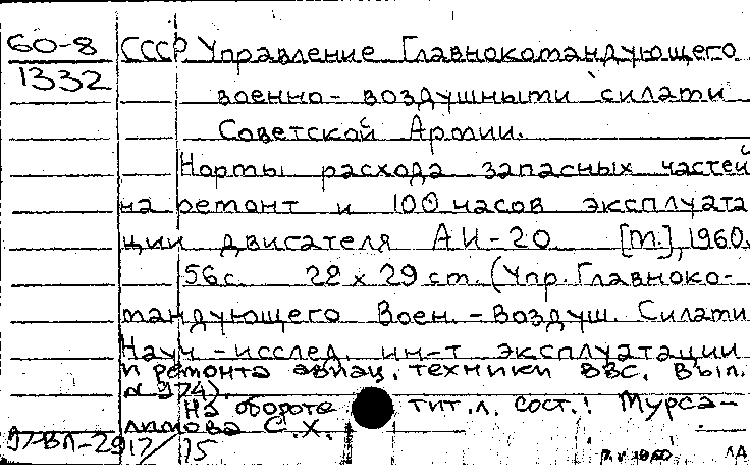 60-8 СССР Управление Главнокомандующего
1332 военно-воздушными силами
Советской Армии.
Нормы расхода запасных частей
на ремонт и 100 часов эксплуата
ции двигателя АИ-20 [М.], 1960.
56с. 22 x 29 см. (Упр. Главноко-
мандующего Воен.-Воздуш. Силами
Научн-исслед. ин-т эксплуатации
и ремонта авиац. техники ВВС. Вып.
№ 974).
На обороте тит.л. сост.: Мурса-
лимова С.Х.